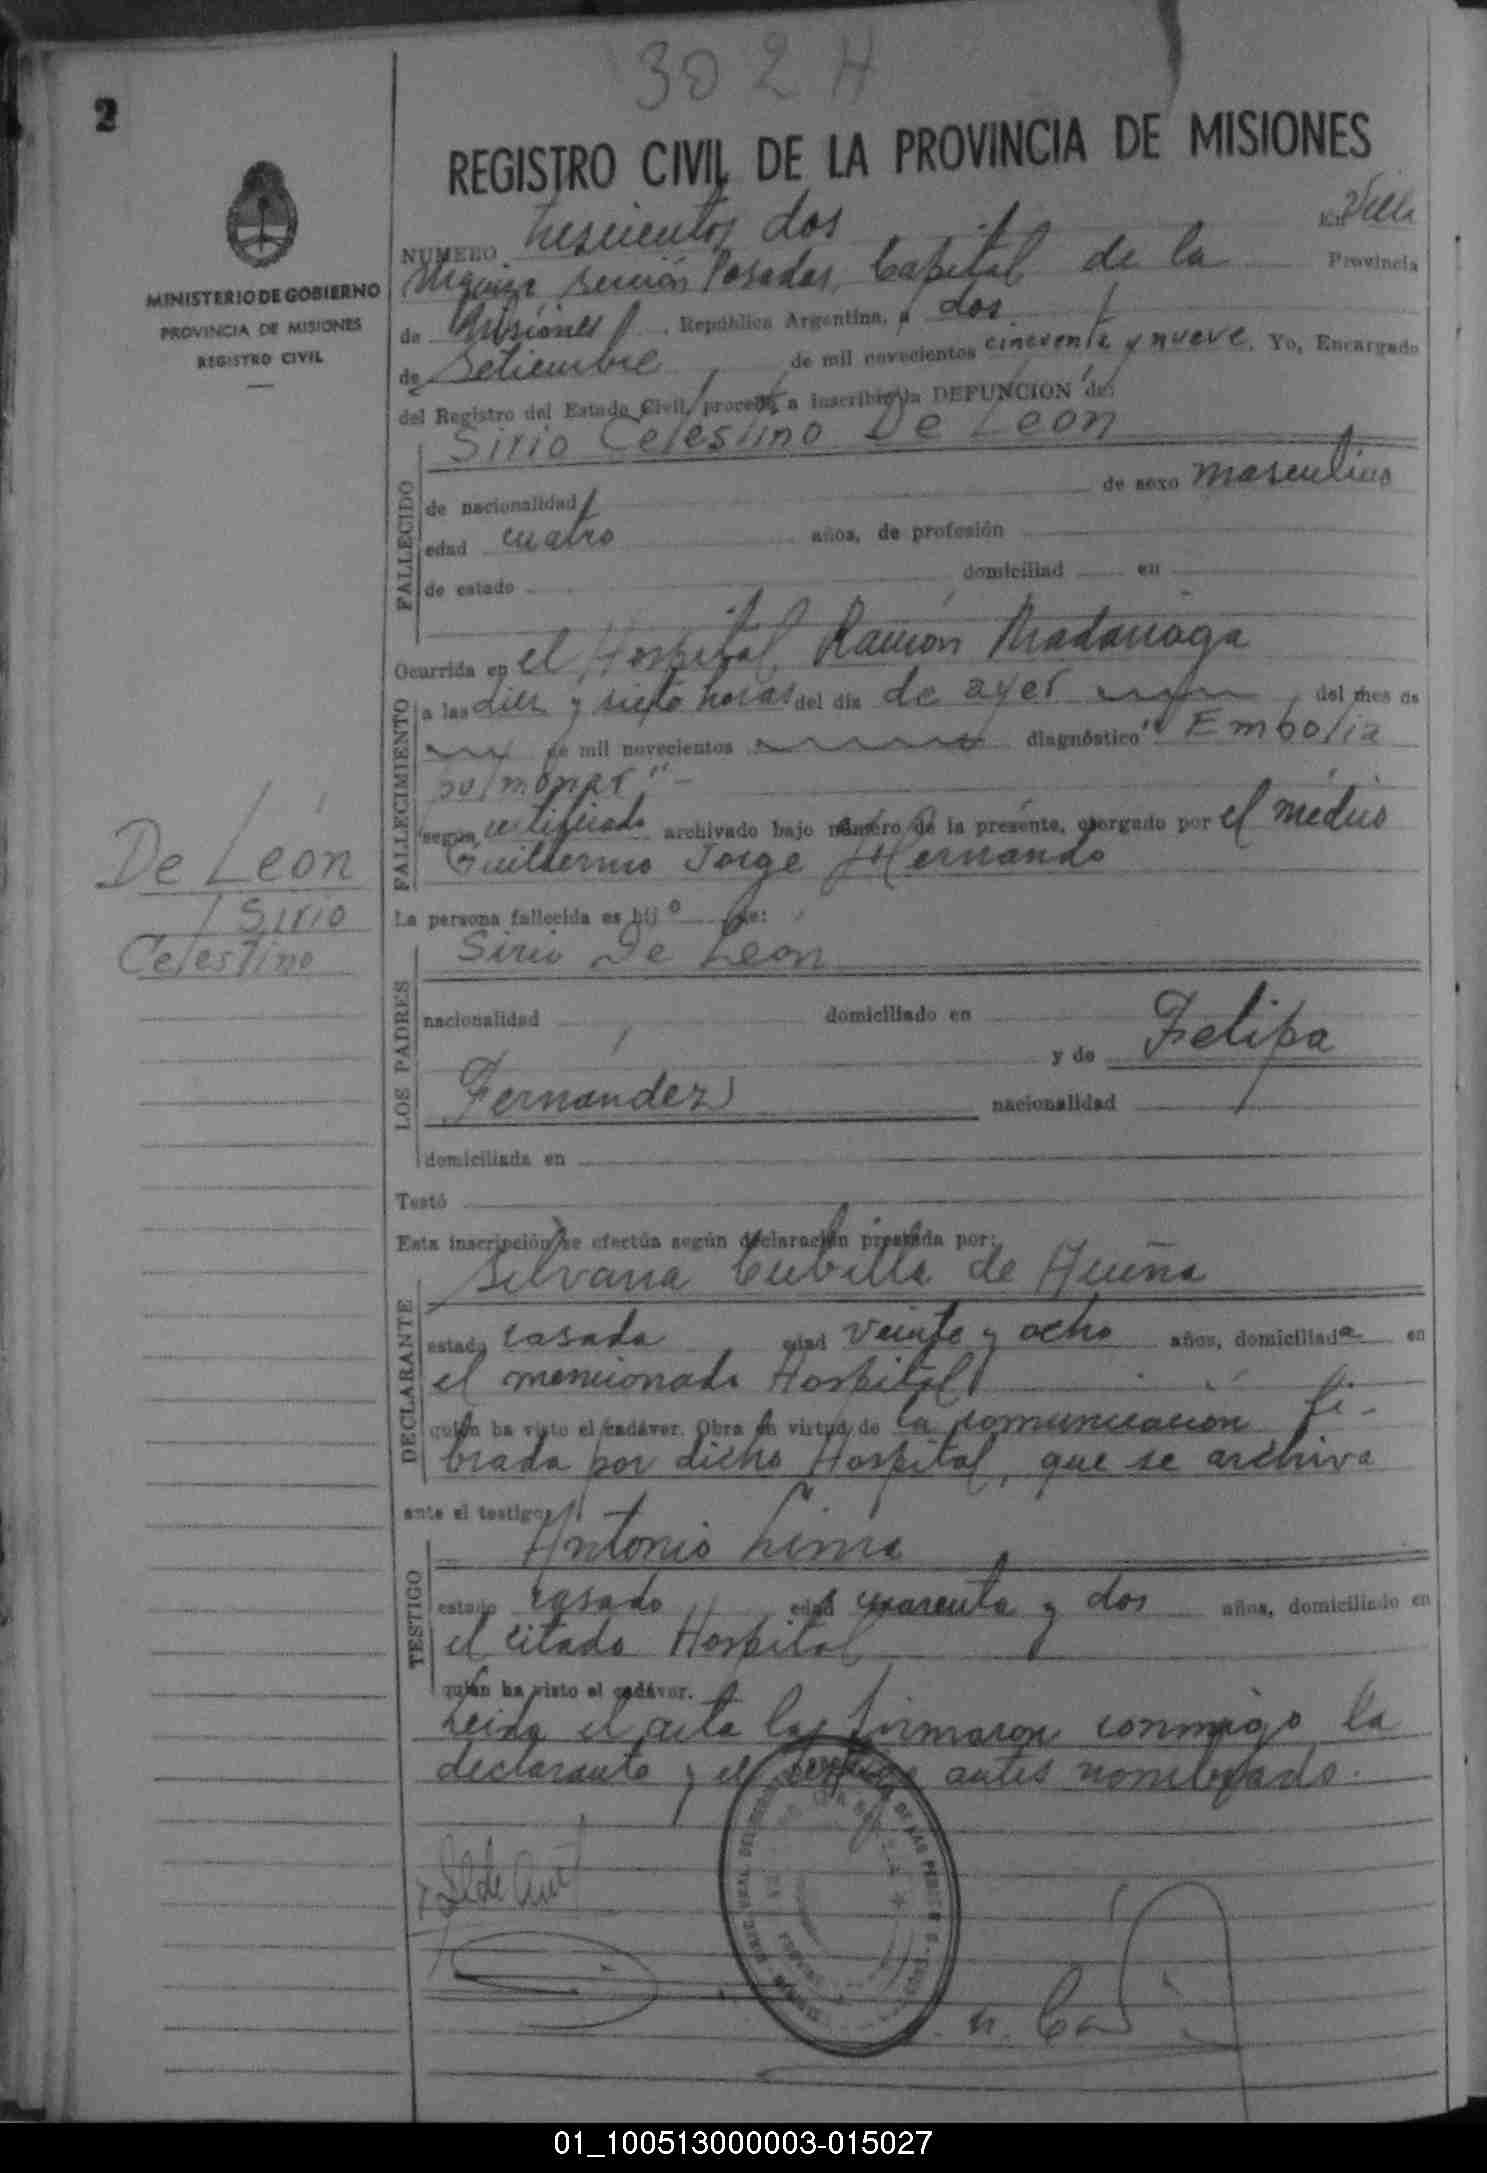 302 H
2
REGISTRO CIVIL DE LA PROVINCIA DE MISIONES
MINISTERIO DE GOBIERNO
PROVINCIA DE MISIONES
REGISTRO CIVIL
NUMERO trescientos dos En Villa
Urquiza sección Posadas, Capital de la Provincia
de Misiones, República Argentina, a dos
de Setiembre de mil novecientos cincuenta y nueve. Yo, Encargado
del Registro del Estado Civil, procedo a inscribir la DEFUNCION de:
Sirio Celestino De León
FALLECIDO
de nacionalidad de sexo masculino
edad cuatro años, de profesión
de estado domiciliad en
FALLECIMIENTO
Ocurrida en el Hospital Ramón Madariaga
a las diez y siete horas del día de ayer del mes de
de mil novecientos diagnóstico "Embolia
pulmonar"-
según certificado archivado bajo número de la presente, otorgado por el médico
Guillermo Jorge Hernando
De León
Sirio
Celestino
La persona fallecida es hijo de:
Sirio De León
LOS PADRES
nacionalidad domiciliado en
y de Felipa
Fernandez nacionalidad
domiciliada en
Testó
Esta inscripción se efectúa según declaración prestada por:
Silvana Cubilla de Acuña
DECLARANTE
estado casada edad veinte y ocho años, domiciliada en
el mencionado Hospital
quien ha visto el cadáver. Obra en virtud de la comunicación li-
brada por dicho Hospital, que se archiva
ante el testigo:
Antonio Lima
TESTIGO
estado casado edad cuarenta y dos años, domiciliado en
el citado Hospital
quien ha visto el cadáver.
Leída el acta la firmaron conmigo la
declarante y el testigo antes nombrado.
01_100513000003-015027